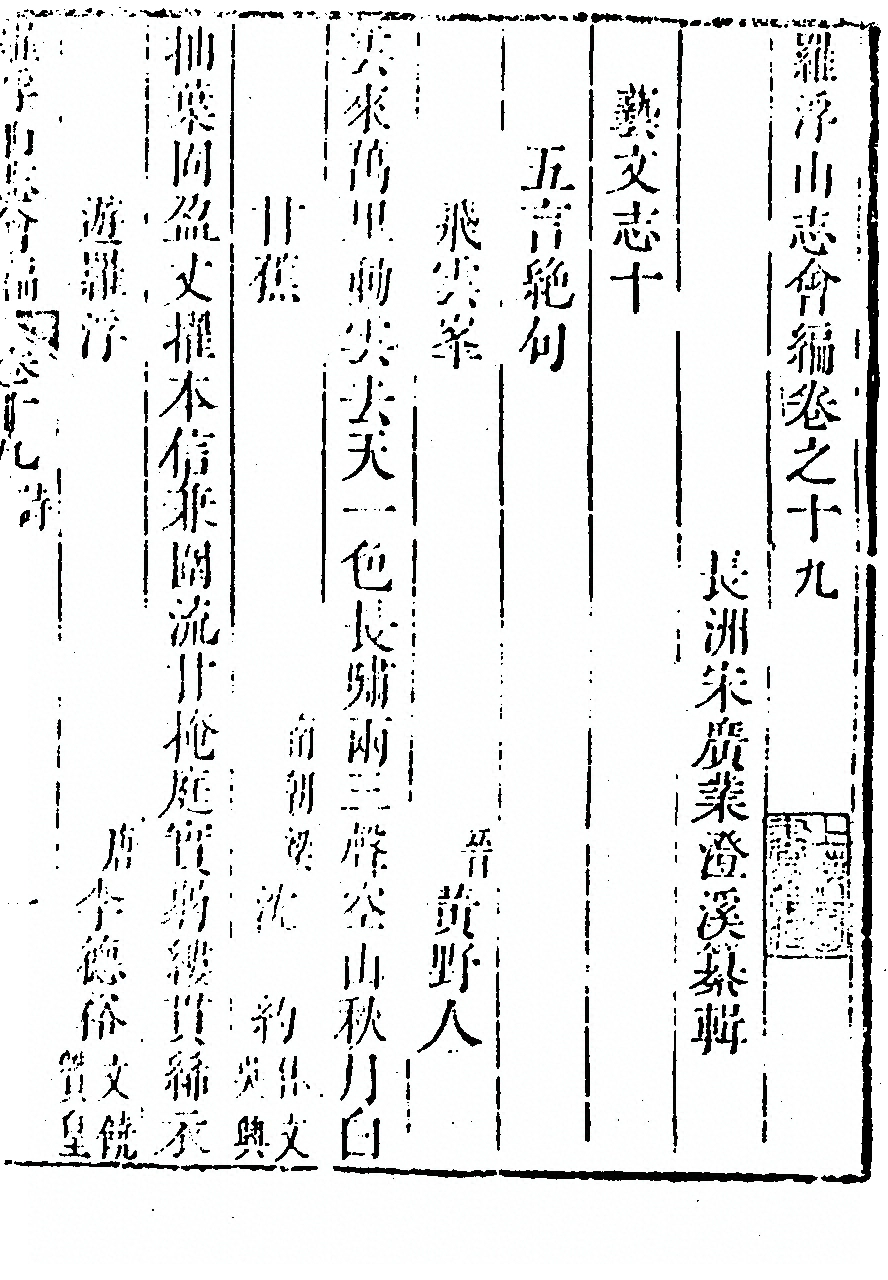 羅浮山志會編卷之十九
長洲宋廣業澄溪纂輯
藝文志十
五言絕句
飛雲峯 晉 黃野人
雲來萬里動雲去天一色長嘯兩三聲空山秋月白
甘蕉 南朝梁 沈 約 休文 吳興
抽葉固盈丈擢本信兼圍流甘掩庭實弱縷貫絺衣
遊羅浮 唐 李德裕 文饒 贊皇
羅浮山志會編 卷十九 詩 一